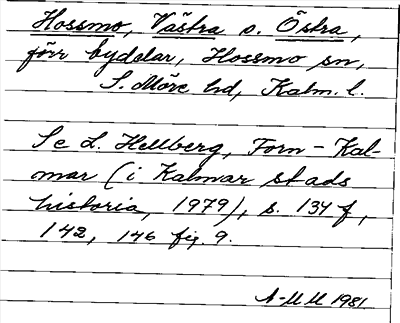 Hossmo, Västra o. Östra,
förr bydelar, Hossmo sn,
S. Möre hd, Kalm. l.
Se L. Hellberg, Forn-Kal-
mar (i Kalmar stads
historia, 1979), s. 134 f,
142, 146 fig. 9.
A-M M 1981